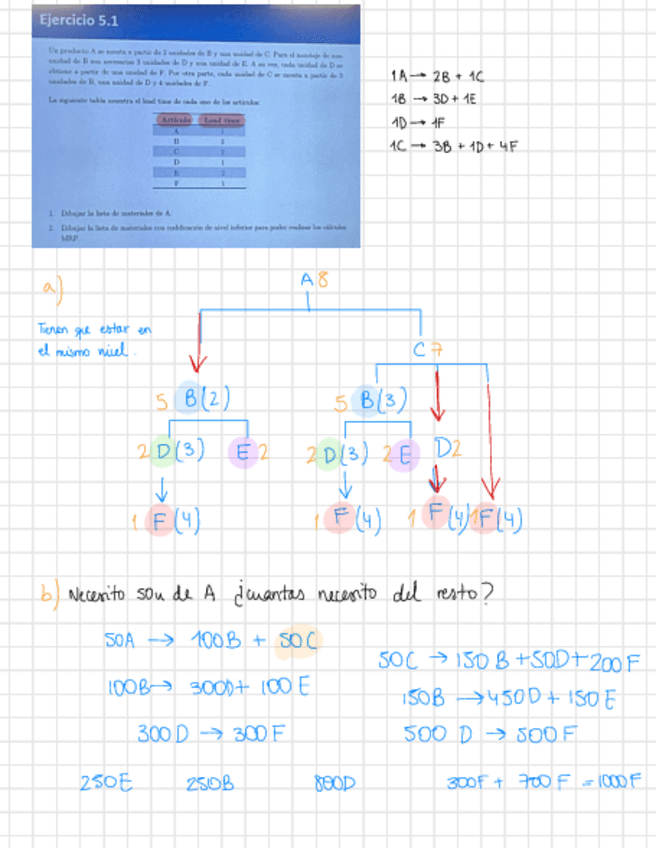 Ejercicio 5.1
Un producto A se monta a partir de 2 unidades de B y una unidad de C. Para el montaje de una
unidad de B son necesarias 3 unidades de D y una unidad de E. A su vez, cada unidad de D se
obtiene a partir de una unidad de F. Por otra parte, cada unidad de C se monta a partir de 3
unidades de B, una unidad de D y 4 unidades de F.
La siguiente tabla muestra el lead time de cada uno de los artículos:
Artículo Lead time
A 1
B
C 2
D 1
E
F 1
1. Dibujar la lista de materiales de A.
2. Dibujar la lista de materiales con codificación de nivel inferior para poder realizar los cálculos
MRP
1A → 2B + 1C
1B → 3D + 1E
1D → 1F
1C → 3B + 1D + 4F
a)
A 8
Tienen que estar en
el mismo nivel.
C 7
5 B(2) 5 B(3)
2 D(3) E 2 2 D(3) 2 E D 2
1 F(4) 1 F(4) 1 F(4) 1F(4)
b) Necesito 50u de A ¿cuantas necesito del resto?
50A → 100B + 50C
50C → 150B + 50D + 200F
100B → 300D + 100E
150B → 450D + 150E
300D → 300F
500 D → 500F
250E 250B 800D 300F + 700F = 1000F